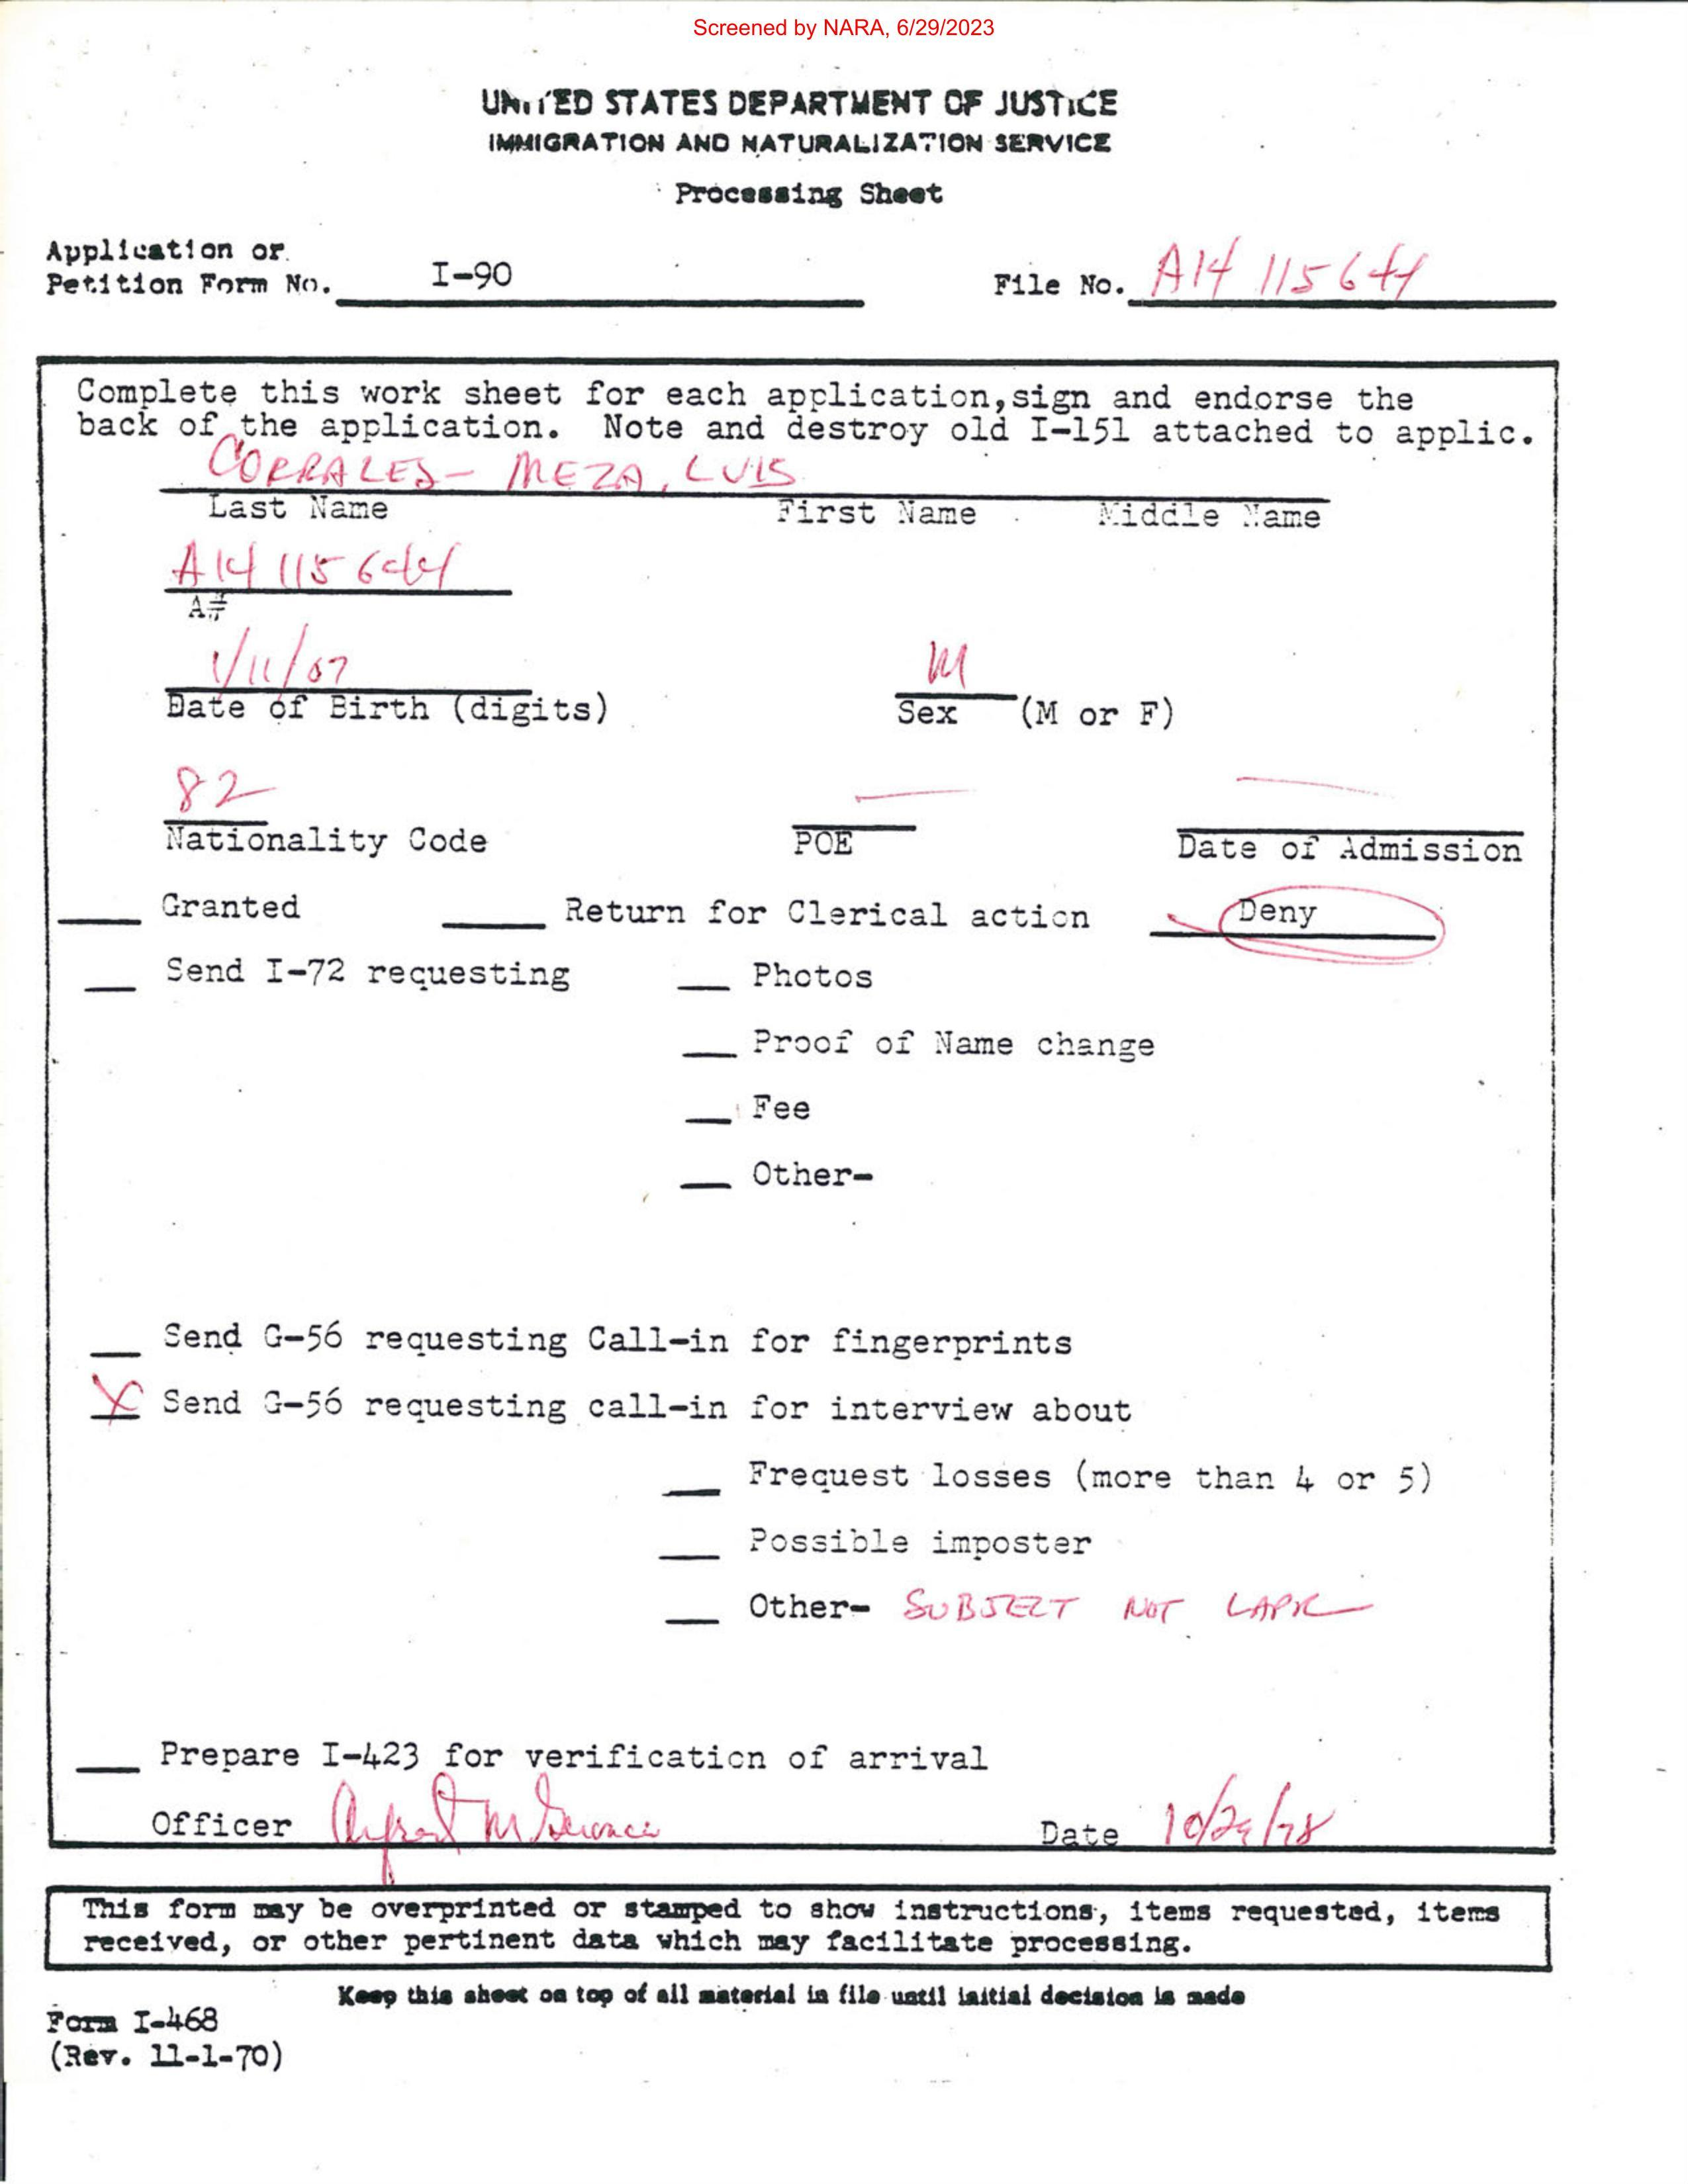 Screened by NARA, 6/29/2023
UNITED STATES DEPARTMENT OF JUSTICE
IMMIGRATION AND NATURALIZATION SERVICE
Processing Sheet
Application or
Petition Form No. I-90 File No. A14 115 644
Complete this work sheet for each application, sign and endorse the
back of the application. Note and destroy old I-151 attached to applic.
CORRALES- MEZA, LUIS
Last Name First Name Middle Name
A14 115 644
A#
1/11/07 M
Date of Birth (digits) Sex (M or F)
82
Nationality Code POE Date of Admission
Granted Return for Clerical action Deny
Send I-72 requesting Photos
Proof of Name change
Fee
Other-
Send G-56 requesting Call-in for fingerprints
X Send G-56 requesting call-in for interview about
Frequest losses (more than 4 or 5)
Possible imposter
Other- SUBJECT NOT LAPR
Prepare I-423 for verification of arrival
Officer Date
This form may be overprinted or stamped to show instructions, items requested, items
received, or other pertinent data which may facilitate processing.
Keep this sheet on top of all material in file until initial decision is made
Form I-468
(Rev. 11-1-70)